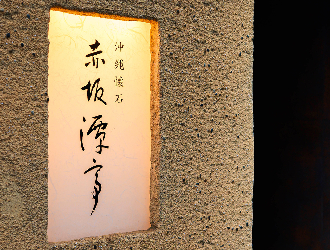 沖縄懐石
赤坂潭亭